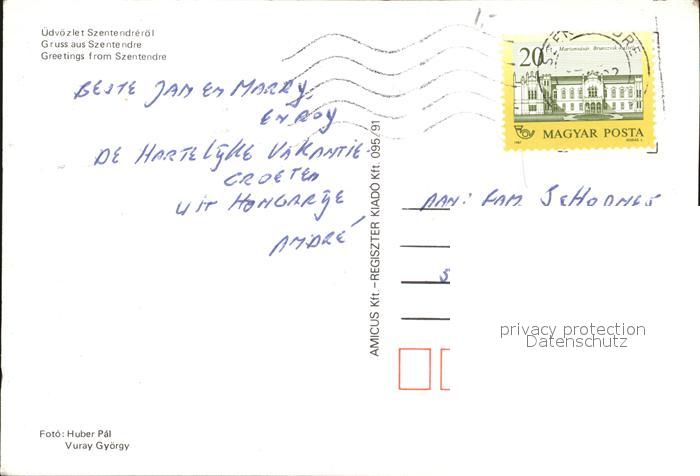 Üdvözlet Szentendréről
Gruss aus Szentendre
Greetings from Szentendre
1.-
BESTE JAN EN MARRY,
EN ROY
DE HARTELYKE VAKANTIE-
GROETEN
UIT HONGARYE
ANDRÉ
AMICUS Kft.–REGISZTER KIADÓ Kft. 095/91
20
Martonvásár, Brunszvik-kastély
MAGYAR POSTA
1987
SZENTENDRE
AAN: FAM
S
privacy protection
Datenschutz
Fotó: Huber Pál
Vuray György